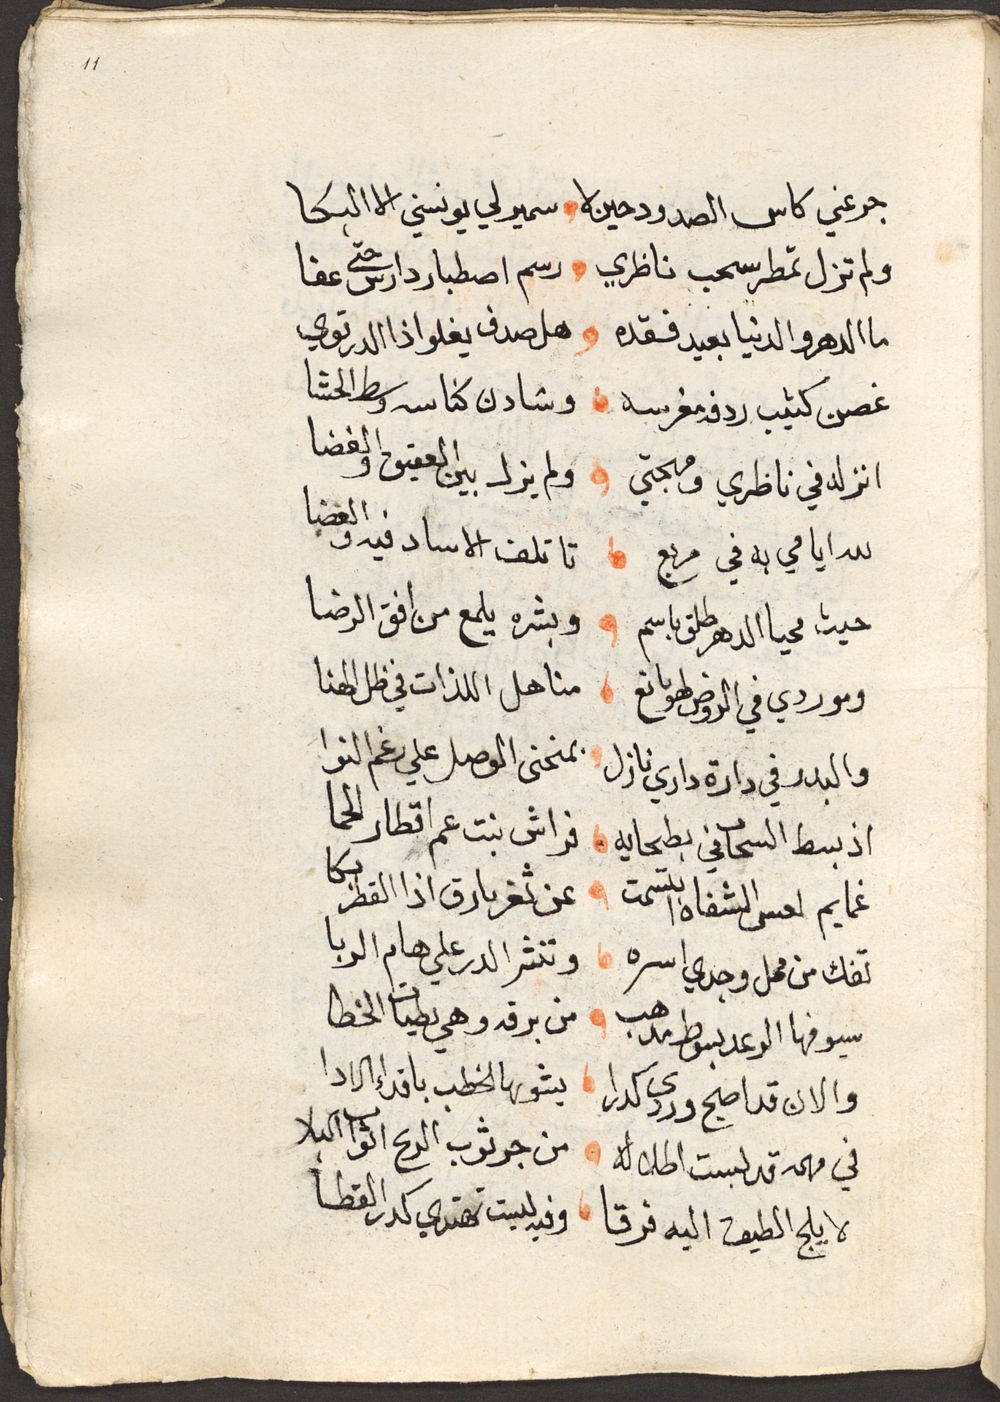 11
جرعني كاس الصدود حين لا ، سمير لي يونسني الا البكا
ولم تزل تمطر سحب ناظري ، رسم اصطبار دارس حتي عفا
ما الدهر والدنيا بعيد فقده ، هل صدف يغلوا اذا الدر توي
غصن كثيب ردفه مغرسه ، وشادن كناسه وسط الحشا
انزله في ناظري ومهجتي ، ولم يزل بين العقيق والغضا
لله ايامي به في مربع ، تاتلف الاساد فيه والغضا
حيث محيا الدهر طلق باسم ، وبشره يلمع من افق الرضا
وموردي في الروض لهو يانع ، مناهل اللذات في ظل الهنا
والبدر في دارة داري نازل ، بمنحنى الوصل علي رغم النوا
اذ بسط السحاب في بطحايه ، فراش نبت عم اقطار الحما
غمايم لعس الشفاه ابتسمت ، عن ثغر بارق اذا القطر بكا
تفك من محل وجدي اسره ، وتنثر الدر علي هام الربا
سيوفها الرعد بسوط مذهب ، من برقه وهي بطيات الخطا
والان قد اصبح وردي كدرا ، يشوبها الخطب باقداء الاذا
في مهمه قد لبست اطلاله ، من جر ثوب الريح اثواب البلا
لا يلج الطيف اليه فرقا ، وفيه ليست تهتدي كدر القطا